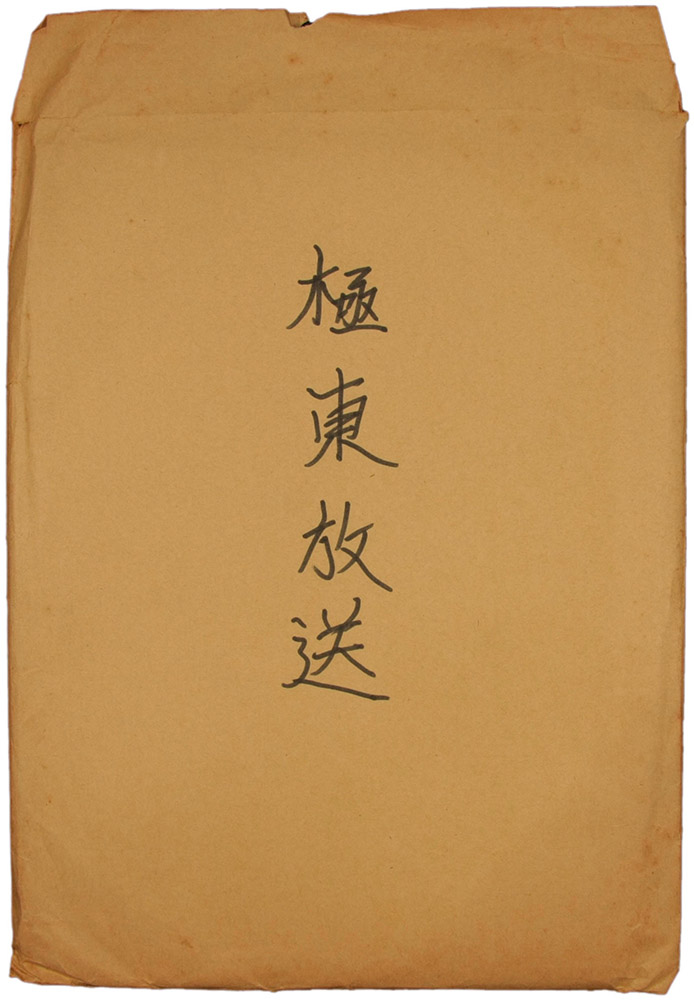 極東放送